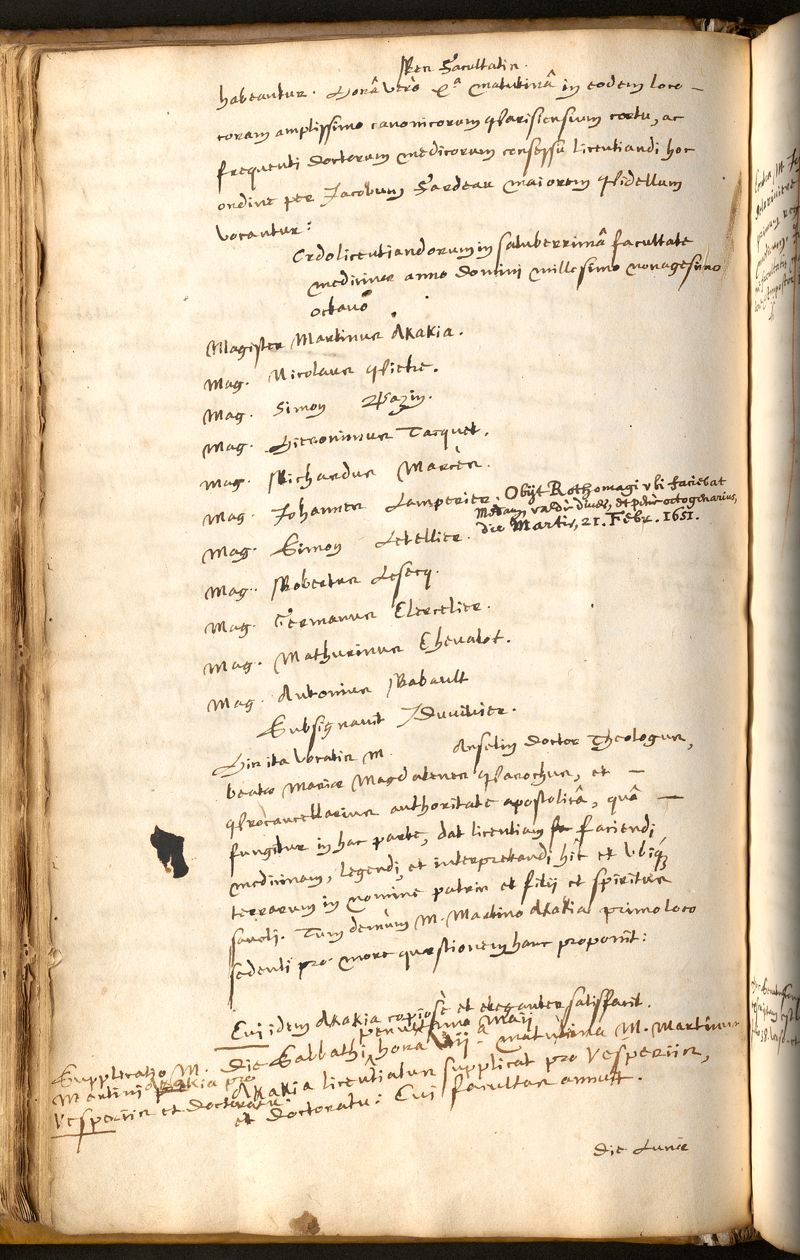 Rer Facultatis.
habeantur. Horâ verò Xª matutinâ in eodem loco —
coram amplissimo canonicorum Parisiensium coetu, ac
frequenti doctorum medicorum consessu licentiandi hoc
ordine per Jacobum Fardeau maiorem Bidellum
vocantur:
Ordo licentiandorum in saluberrimâ facultate
medicinae anno domini millesimo nonagesimo
octavo
Magister Martinus Akakia.
Mag. Nicolaus Pietre.
Mag. Simon Bazin.
Mag. Hieronimus Tacquet.
Mag. Richardus Marcès.
Mag. Johannes Lamperier. Obijt Rothomagi ubi faciebat
Medicinam, valdè dives, et penè octogenarius,
die Martis, 21. Febr. 1651.
Mag. Simon Letellier.
Mag. Robertus Lesecq.
Mag. Germanus Clercelier.
Mag. Mathurinus Chevalot.
Mag. Antonius Rabault
Subsignavit Duvivier.
His ita vocatis M. Anselin doctor Theologus,
beatae Mariae Magdalenes Parochus, et —
Procancellarius authoritate apostolicâ, quâ —
fungitur in hac parte, dat licentiam faciendi
medicinam, legendi, et interpretandi hîc et ubiq;
terrarum in nomine patris et filij et spiritus
sancti. Tum demùm M. Martino Akakia primo loco
sedenti pro more quaestionem hanc proponit:
Cui idem Akakia copiosè et eleganter satisfacit.
penultimo Maij
Supplicatio M.
Martini Akakia pro
Vesperiis et doctoratu.
Die Sabbathi hora matutina M. Martinus
Akakia licentiatus supplicat pro Vesperiis,
et doctoratu: Cui facultas annuit.
die Lunae